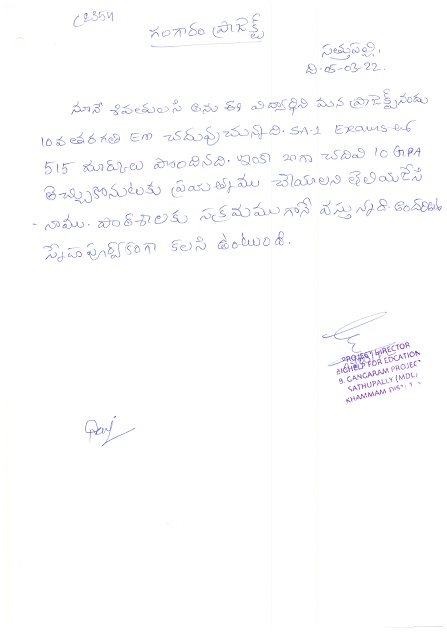 C2354
గంగారం ప్రాజెక్ట్
సత్తుపల్లి,
ది. 05-03-22.
నూనే శివతులసి అను ఈ విద్యార్థిని మన ప్రాజెక్ట్ నందు
10వ తరగతి EM చదువుచున్నది. SA-1 Exams లో
515 మార్కులు పొందినది. ఇంకా బాగా చదివి 10 GPA
తెచ్చుకొనుటకు ప్రయత్నము చేయాలని తెలియజేసి
- నాము. పాఠశాలకు సక్రమముగానే వస్తున్నది. అందరితో
స్నేహపూర్వకంగా కలసి ఉంటుంది.
PROJECT DIRECTOR
BIGHELP FOR EDCATION
B. GANGARAM PROJECT
SATHUPALLY (MDL)
KHAMMAM DIST